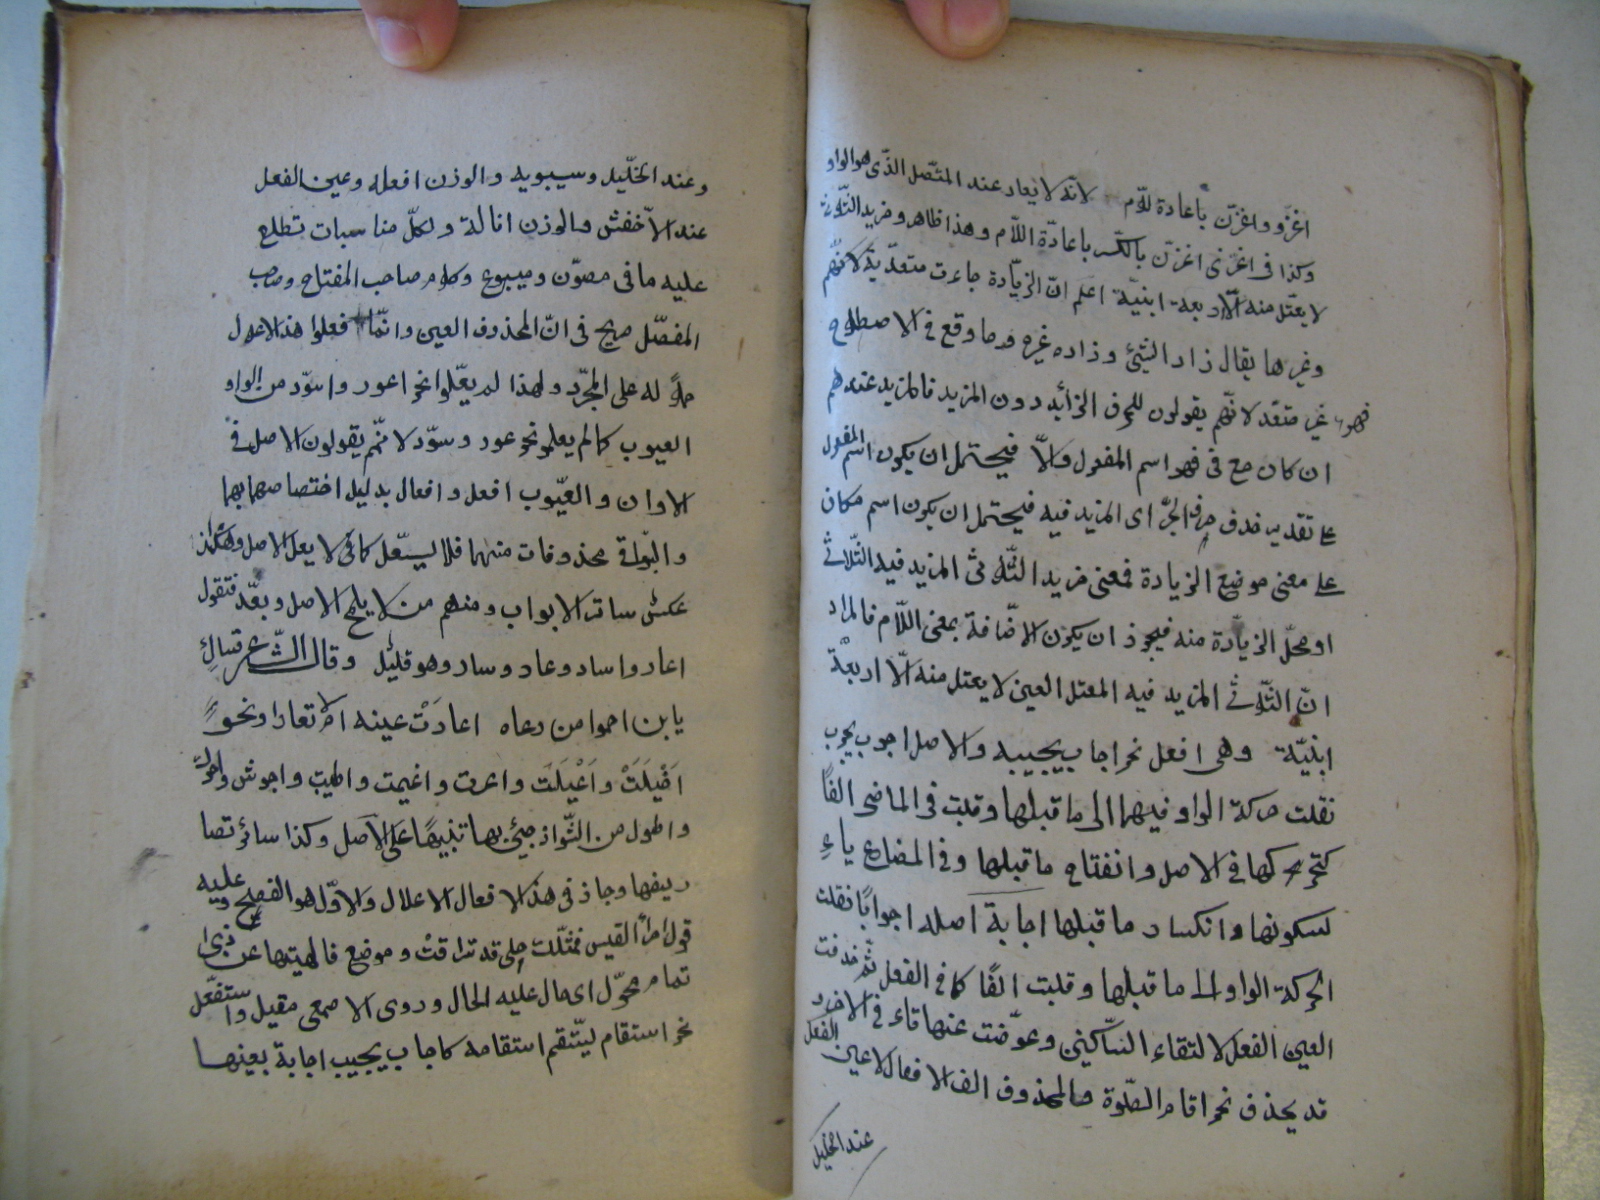 اغزو واغزن باعادة للام لانه لا يعاد عند المتصل الذي هو الواو
وكذا في اغزى اغزن بالكسر باعادة اللام وهذا ظاهر ومزيد الثلاثي
لا يعتل منه الا اربعة ابنية اعلم ان الزيادة جاءت متعدية لانهم
وغيرها يقال زاد الشيئ وزاده غيره وما وقع في الاصطلاح
فهو غير متعد لانهم يقولون للحرف الزائد دون المزيد فالمزيد عندهم
ان كان مع في فهو اسم المفعول والا فيحتمل ان يكون اسم المفعول
على تقدير حذف حرف الجر اى المزيد فيه فيحتمل ان يكون اسم مكان
على معنى موضع الزيادة فمعنى مزيد الثلاثى المزيد فيه الثلاثي
او محل الزيادة منه فيجوز ان يكون الاضافة بمعنى اللام فالمراد
ان الثلاثي المزيد فيه المعتل العين لا يعتل منه الا اربعة
ابنية وهى افعل نحو اجاب يجيب والاصل اجوب يجوب
نقلت حركة الواو فيهما الى ما قبلها وقلبت في الماضى الفا
لتحركها في الاصل وانفتاح ما قبلها وفي المضارع ياء
لسكونها وانكسار ما قبلها اجابة اصله اجوابا نقلت
الحركة الواو الى ما قبلها وقلبت الفا كما في الفعل ثم حذفت
العين الفعل لالتقاء الساكنين وعوضت عنها تاء في الاخر
قد يحذف نحو اقام الصلوة والمحذوف الف الافعال لا عين الفعل
عند الخليل
وعند الخليل وسيبويه والوزن افعلة وعين الفعل
عند الاخفش والوزن افالة ولكل مناسبات تطلع
عليه ما في مصون ومبيوع وكلام صاحب المفتاح وصاحب
المفصل صريح في ان المحذوف العين وانما فعلوا هذا الاعلال
حملا له على المجرد ولهذا لم يعلوا نحو اعور واسود من الواو
العيوب كما لم يعلو نحو عور وسود لانهم يقولون الاصل في
الالوان والعيوب افعل وافعال بدليل اختصاصهما بهما
والبواقي محذوفات منهما فلا يعل كما لا يعل الاصل
عكس سائر الابواب ومنهم من لا يلمح الاصل فتقول
اعار واساد وعاد وساد وهو قليل وقال الشاعر
يا ابن احمر من رعاه اعارت عينه ام لا تعارا ونحو
اخيلت واغيلت واعرت واغيمت واطيب واحوش
واطول من الشواذ جيئ بها تنبيها على الاصل وكذا سائر تصا
ريفها وجاز في هذه الافعال الاعلال والاول هو الفصيح وعليه
قول امرأ القيس فمثلك حبلى قد طرقت وموضع فالهيتها عن ذى
تمام محول اى حال عليه الحال وروى الاصمعي مغيل واستفعل
نحو استقام يستقيم استقامة كاجاب يجيب اجابة بعينها